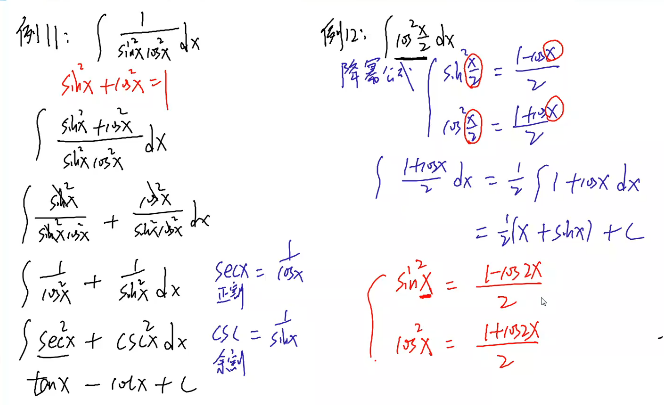 例11: ∫ 1/(sin²x cos²x) dx
sin²x + cos²x = 1
∫ (sin²x + cos²x)/(sin²x cos²x) dx
∫ sin²x/(sin²x cos²x) + cos²x/(sin²x cos²x) dx
∫ 1/cos²x + 1/sin²x dx
secx = 1/cosx
正割
∫ sec²x + csc²x dx
csc = 1/sinx
余割
tanx - cotx + C
例12: ∫ cos²(x/2) dx
降幂公式
sin²(x/2) = (1-cosx)/2
cos²(x/2) = (1+cosx)/2
∫ (1+cosx)/2 dx = 1/2 ∫ 1+cosx dx
= 1/2(x + sinx) + C
sin²x = (1-cos2x)/2
cos²x = (1+cos2x)/2